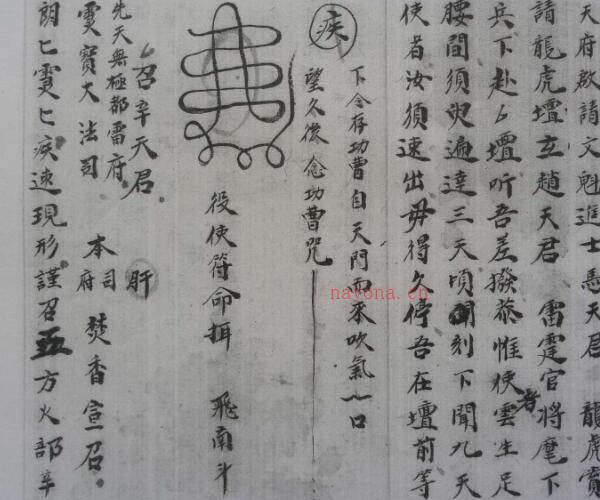 天府啟請文魁進士馮天君　龍虎實
請龍虎壇玄趙天君　雷霆官將麾下
兵下赴ㄥ壇聽吾差撥恭惟使者雲生足
腰間須臾遍達三天頃刻下聞九天
使者汝須速出毋得久停吾在壇前等
疾　下令存功曹自天門而來吹氣一口
望久後念功曹咒
役使符命揖　飛南斗
ㄥ召辛天君　肝
先天無極都雷府　本司府　焚香宣召
霛寶大法司
朗匕霛匕疾速現形謹召五方火部辛
nayona.cn